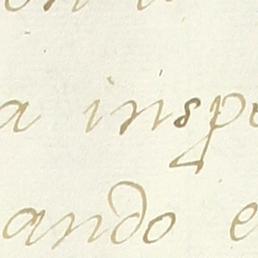 a inspe
ando e